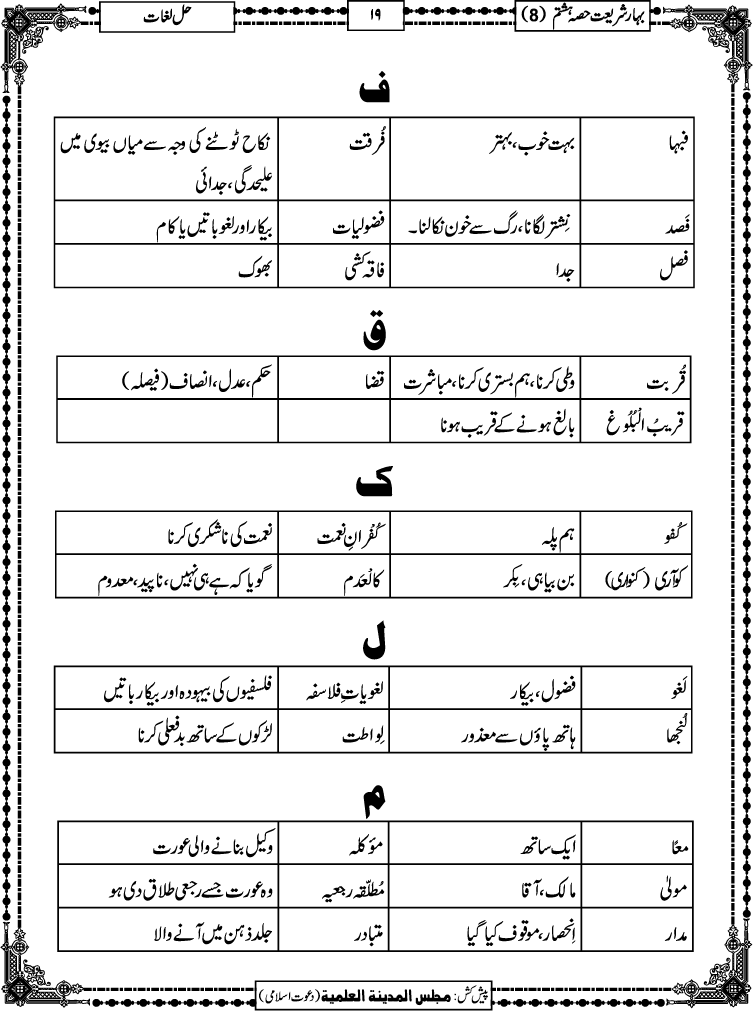 بہار شریعت حصہ ہشتم (8) ۱۹ حل لغات
ف
فبہا بہت خوب، بہتر فُرقت نکاح ٹوٹنے کی وجہ سے میاں بیوی میں
علیحدگی، جدائی
فَصد نِشتر لگانا، رگ سے خون نکالنا۔ فضولیات بیکار اور لغو باتیں یا کام
فصل جدا فاقہ کشی بھوک
ق
قُربت وطی کرنا، ہم بستری کرنا، مباشرت قضا حکم، عدل، انصاف (فیصلہ)
قریبُ الْبُلُوغ بالغ ہونے کے قریب ہونا
ک
کُفو ہم پلہ کُفْرانِ نعمت نعمت کی ناشکری کرنا
کوآری (کنواری) بن بیاہی، بِکر کالْعَدم گویا کہ ہے ہی نہیں، ناپید، معدوم
ل
لَغو فضول، بیکار لغویاتِ فلاسفہ فلسفیوں کی بیہودہ اور بیکار باتیں
لُنجھا ہاتھ پاؤں سے معذور لِواطت لڑکوں کے ساتھ بدفعلی کرنا
م
معًا ایک ساتھ مؤکلہ وکیل بنانے والی عورت
مولیٰ مالک، آقا مُطلّقہ رجعیہ وہ عورت جسے رجعی طلاق دی ہو
مدار اِنحصار، موقوف کیا گیا متبادر جلد ذہن میں آنے والا
پیش کش: مجلس المدینۃ العلمیۃ (دعوت اسلامی)